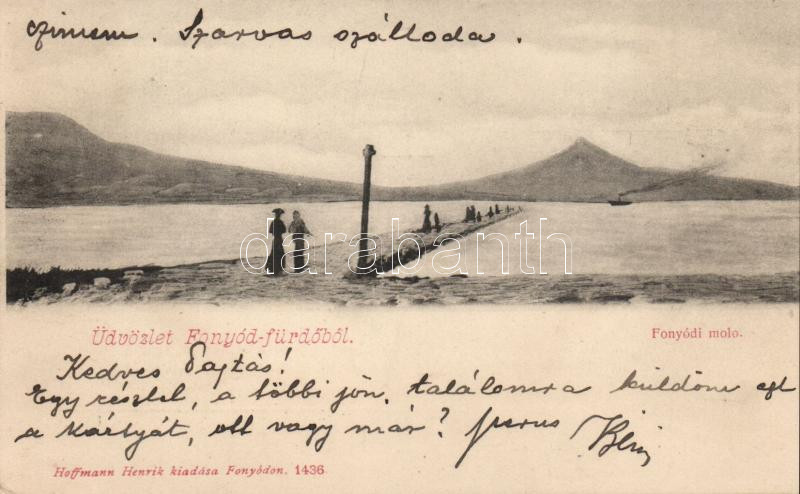 czimem. Szarvas szálloda.
darabanth
Üdvözlet Fonyód-fürdőből.
Fonyódi molo.
Kedves Pajtás!
Egy részlet, a többi jön, találomra küldöm ezt
a kártyát, ott vagy már?
Hoffmann Henrik kiadása Fonyódon. 1436